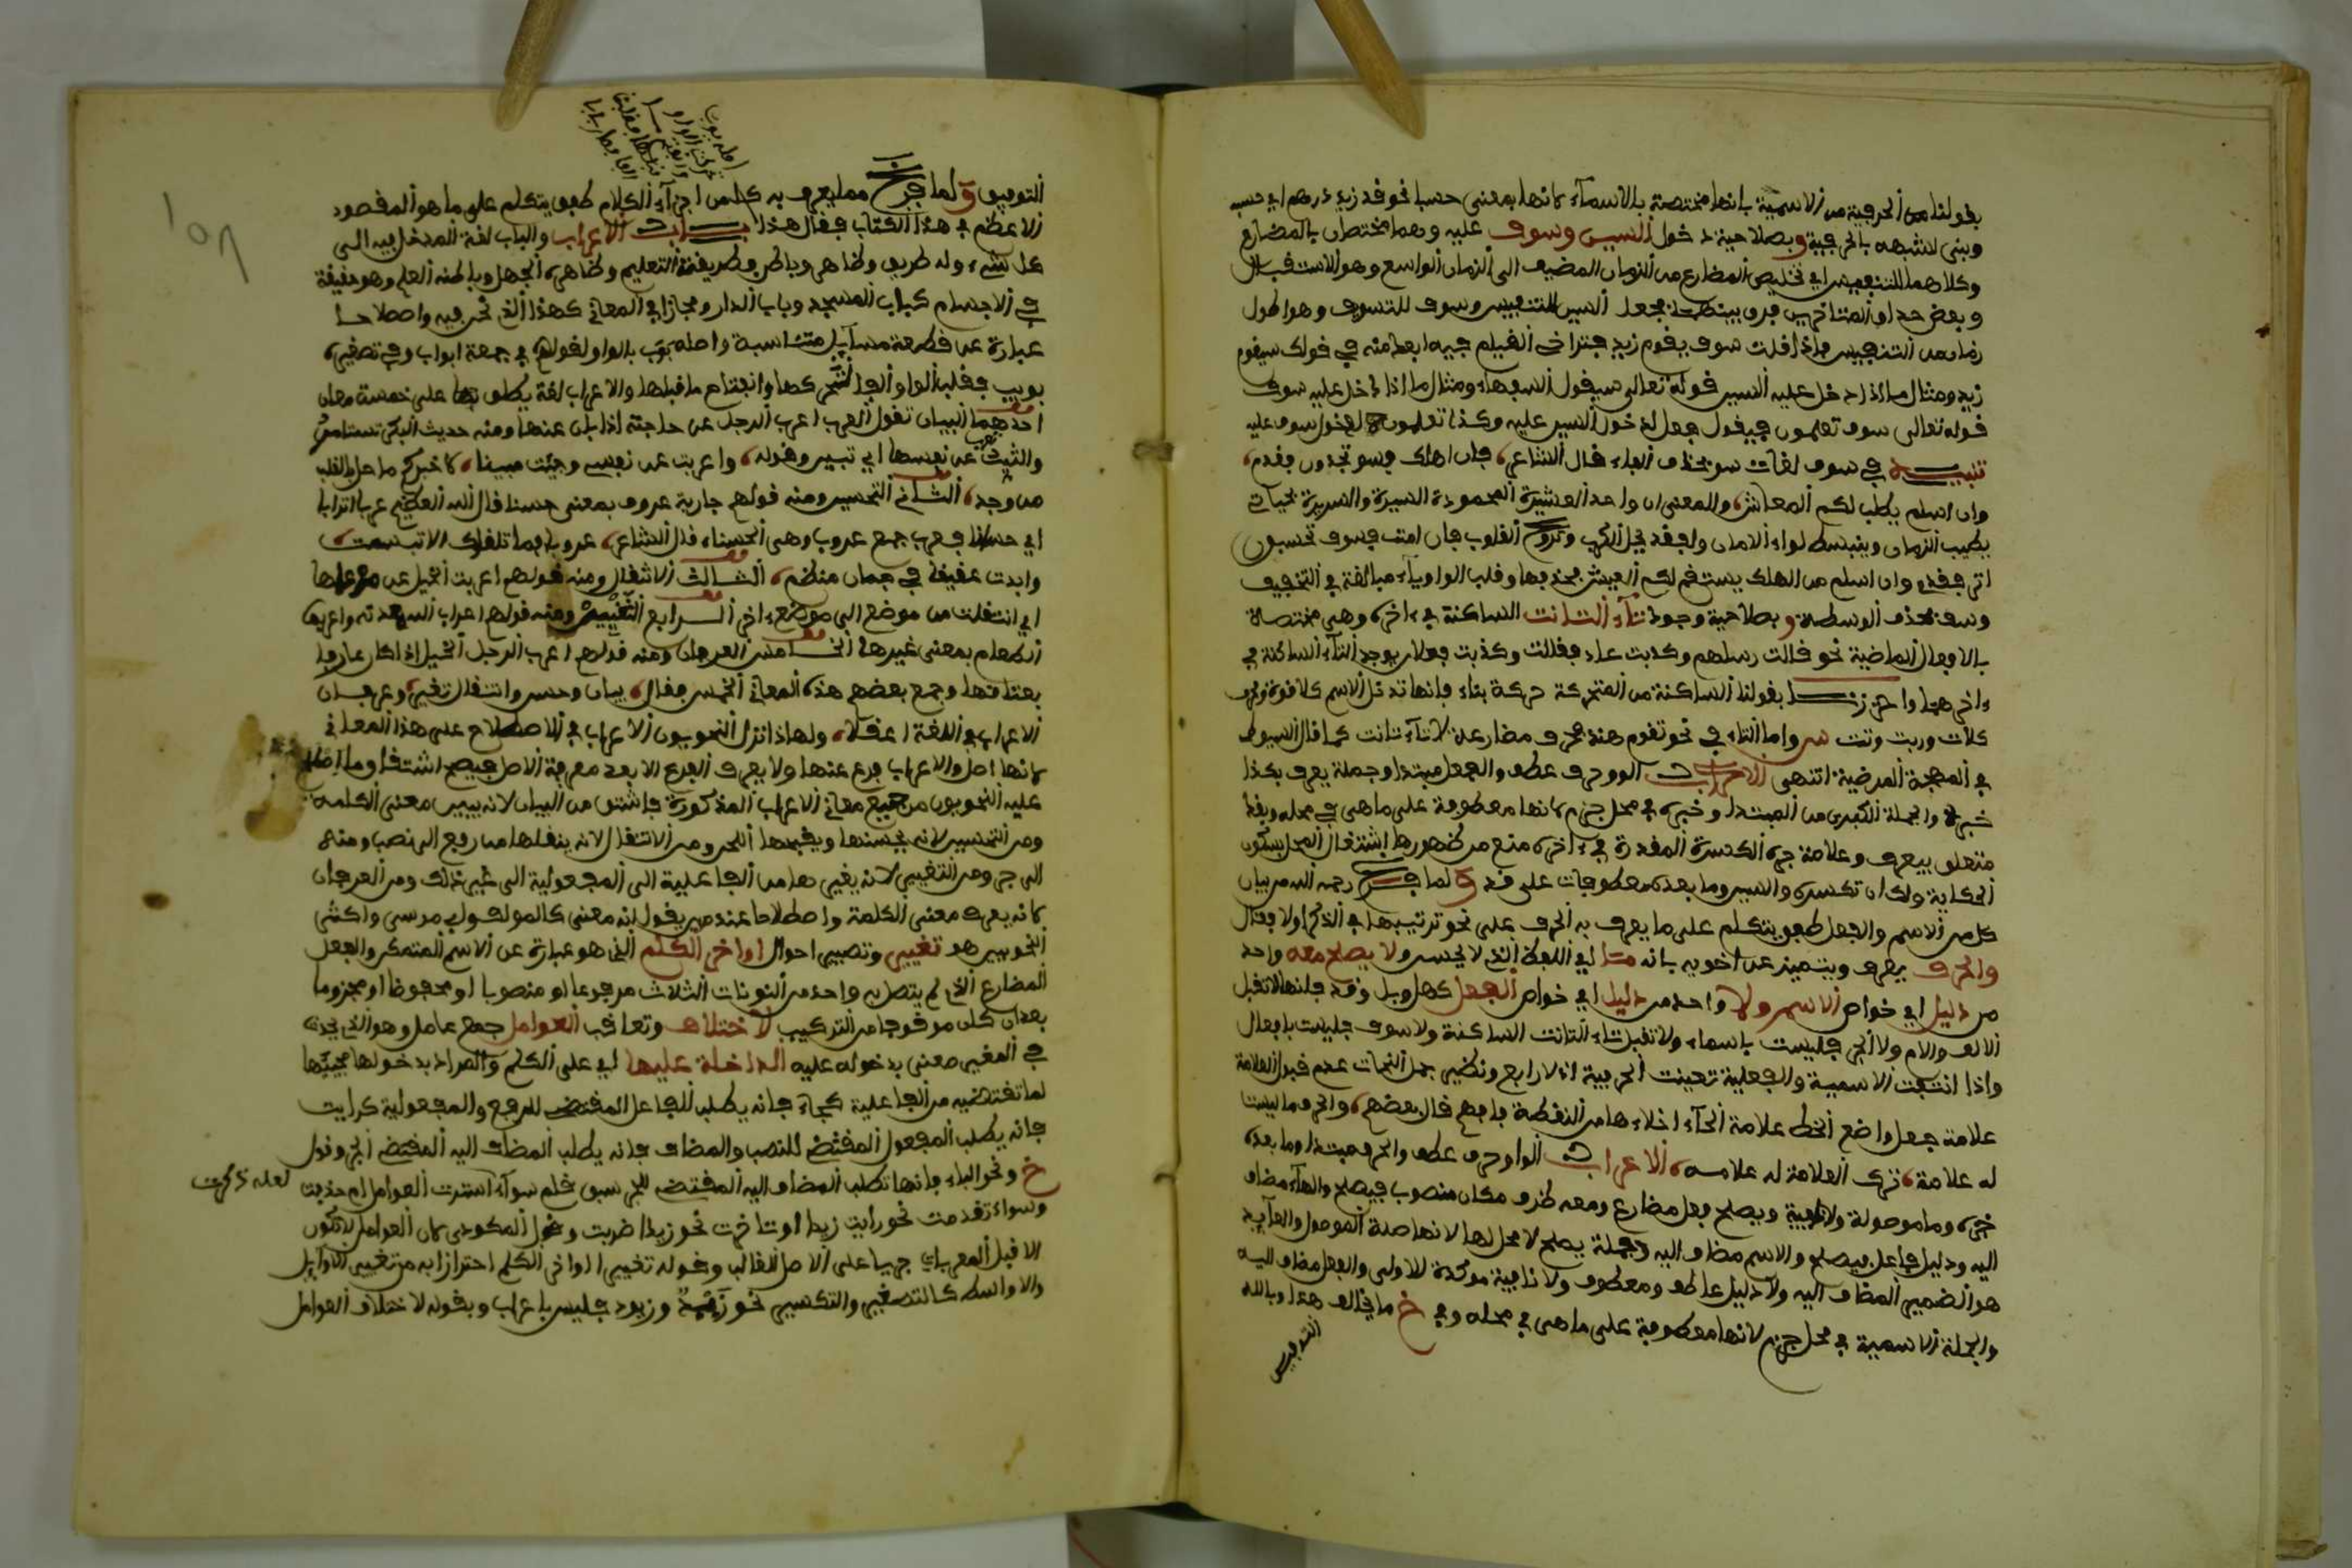 بقولنا من الحرفية من الاسمية بانها مختصة بالاسماء كانها بمعنى حسبا نحو قد زيد درهم اي حسبه
وبنى لشبهه بالحرفية وبصلاحية دخول السين وسوف عليه وهما مختصان بالمضارع
وكلاهما للتنفيس اي تخليص المضارع من الزمان المضيق الى الزمان الواسع وهو الاستقبال
وبعض حذاق المتاخرين فرق بينهما بجعل السين للتنفيس وسوف للتسويف وهو اطول
زمانا من التنفيس فاذا قلت سوف يقوم زيد فتراخى القيام فيه ابعد منه في قولك سيقوم
زيد ومثال ما اذا دخل عليه السين قوله تعالى سيقول السفهاء ومثال ما اذا دخل عليه سوف
قوله تعالى سوف تعلمون فيقول فعل لدخول السين عليه وكذا تعلمون لدخول سوف عليه
تنبيه في سوف لغات سو بحذف الفاء قال الشاعر فان اهلك فسو تجدون فقدي
وان اسلم يطب لكم المعاش والمعنى ان واحد العشيرة المحمودة السيرة والسريرة بحياته
يطيب الزمان وينبسط لواء الامان ولفقده يحل الكرب وتروح القلوب فان امت فسوف تحسبون
اثر فقدي وان اسلم من الهلك يستقم لكم العيش بحذفها وقلب الواو ياء مبالغة في التخفيف
وسف بحذف الوسط وبصلاحية وجود تاء التانيث الساكنة في اخره وهي مختصة
بالافعال الماضية نحو قالت رسلهم وكذبت عاد فقالت وكذبت فعلان لوجود التاء الساكنة في
اخرهما واحترزنا بقولنا الساكنة من المتحركة حركة بناء فانها تدخل الاسم كلا قوة والحرف
كلات وربت وثمت واما التاء في نحو تقوم هند فحرف مضارعة لا تاء تانيث كما قال السيوطي
في البهجة المرضية انتهى الاعراب الواو حرف عطف والفعل مبتدا وجملة يعرف بكذا
خبره والجملة الكبرى من المبتدا وخبره في محل جزم لانها معطوفة على ما هي في محله وبقد
متعلق بيعرف وعلامة جره الكسرة المقدرة في اخره منع من ظهورها اشتغال المحل بسكون
الحكاية ولك ان تكسره والسين وما بعده معطوفات على قد ولما فرغ رحمه الله من بيان
كل من الاسم والفعل طفق يتكلم على ما يعرف به الحرف على نحو ترتيبها في الذكر اولا فقال
والحرف يعرف ويتميز عن اخويه بانه ما اي اللفظ الذي لا يحسن ولا يصلح معه واحد
من دليل اي خواص الاسم ولا واحد من دليل اي خواص الفعل كهل وبل وقد فانها لا تقبل
الالف واللام ولا الجر فليست باسماء ولا تقبل تاء التانيث الساكنة ولا سوف فليست بافعال
واذا انتفت الاسمية والفعلية تعينت الحرفية اذ لا رابع ونظير جعل النحات عدم قبول العلامة
علامة جعل واضع الخط علامة الحاء اخلاءها من النقطة فافهم قال بعضهم والحرف ما ليست
له علامة ترك العلامة له علامه الاعراب الواو حرف عطف والحرف مبتدا وما بعده
خبره وما موصولة ولا نافية ويصلح فعل مضارع ومعه ظرف مكان منصوب بيصلح والهاء مضاف
اليه ودليل فاعل بيصلح والاسم مضاف اليه وجملة يصلح لا محل لها لانها صلة الموصول والعائد
هو الضمير المضاف اليه ولا دليل عاطف ومعطوف ولا نافية موكدة للاولى والفعل مضاف اليه
والجملة الاسمية في محل جزم لانها معطوفة على ما هي في محله وفي خ ما يخالف هذا وبالله
التوفيق
التوفيق ولما فرغ مما يعرف به كل من اجزاء الكلام طفق يتكلم على ما هو المقصود
الاعظم في هذا الكتاب فقال هذا باب الاعراب والباب لغة المدخل فيه الى
كل شيء وله طريق وظاهر وباطن وطريقة التعليم وظاهره الجهل وباطنه العلم وهو حقيقة
في الاجسام كباب المسجد وباب الدار ومجاز في المعاني كهذا الذي نحن فيه واصطلاحا
عبارة عن قطعة مسايل متناسبة واصله بوب بالواو لقولهم في جمعه ابواب وفي تصغيره
بويب فقلبت الواو الفا لتحركها وانفتاح ما قبلها والاعراب لغة يطلق على خمسة معان
احدهما البيان تقول العرب اعرب الرجل عن حاجته اذا بان عنها ومنه حديث البكر تستامر
والثيب تعرب عن نفسها اي تبين وقوله واعربت عن نفسي وجئت مبينا لاخبركم ما حل بالقلب
من وجد الثاني التحسين ومنه قولهم جارية عروب بمعنى حسنا قال الله العظيم عربا اترابا
اي حسانا فعرب جمع عروب وهي الحسناء قال الشاعر عروب فما تلقاك الا تبسمت
وابدت عقيقا في جمان منظم الثالث الانتقال ومنه قولهم اعربت الخيل عن مرعاها
اي انتقلت من موضع الى موضع اخر الرابع التغيير ومنه قولهم اعراب المعدة واعربها
الطعام بمعنى غيرها الخامس العرفان ومنه قولهم اعرب الرجل الخيل اذا كان عارفا
بعتاقها وجمع بعضهم هذه المعاني الخمس فقال بيان وحسن وانتقال تغير وعرفان
الاعراب في اللغة اعقلا ولهذا نزل النحويون الاعراب في الاصطلاح على هذا المعاني
لانها اصل والاعراب فرع عنها ولا يعرف الفرع الا بعد معرفة الاصل فيصح اشتقاق ما اصطلح
عليه النحويون من جميع معاني الاعراب المذكورة فاشتق من البيان لانه يبين معنى الكلمة
ومن التحسين لانه يحسنها ويقبحها اللحن ومن الانتقال لانه ينقلها من رفع الى نصب ومنه
الى جر ومن التغيير لانه يغيرها من الفاعلية الى المفعولية الى غير ذلك ومن العرفان
لانه يعرف معنى الكلمة واصطلاحا عند من يقول انه معنى كالمولف وابن مرسى واكثر
النحويين هو تغيير وتصيير احوال اواخر الكلم الذي هو عبارة عن الاسم المتمكن والفعل
المضارع الذي لم يتصل به واحد من النونات الثلاث مرفوعا او منصوبا او مخفوضا او مجزوما
بعد ان كان موقوفا من التركيب لاختلاف وتعاقب العوامل جمع عامل وهو الذي يحدث
في المغير معنى بدخوله عليه الداخلة عليها اي على الكلم والمراد بدخولها مجيئها
لما تقتضيه من الفاعلية كجاء فانه يطلب الفاعل المقتضي للرفع والمفعولية كرايت
فانه يطلب المفعول المقتضي للنصب والمضاف فانه يطلب المضاف اليه المقتضي الجر وقول
خ ونحو الباء فانها تطلب المضاف اليه المقتضي للجر سبق قلم سواء استترت العوامل ام حذفت لعله ذكرت
وسواء تقدمت نحو رايت زيدا او تاخرت نحو زيدا ضربت وقول المكودي كان العوامل لا تكون
الا قبل المعربات جريا على الاصل الغالب وقوله تغيير الاواخر الكلم احترازا به من تغيير الاوايل
والاواسط كالتصغير والتكسير نحو زييد وزيود فليس باعراب وبقوله لاختلاف العوامل